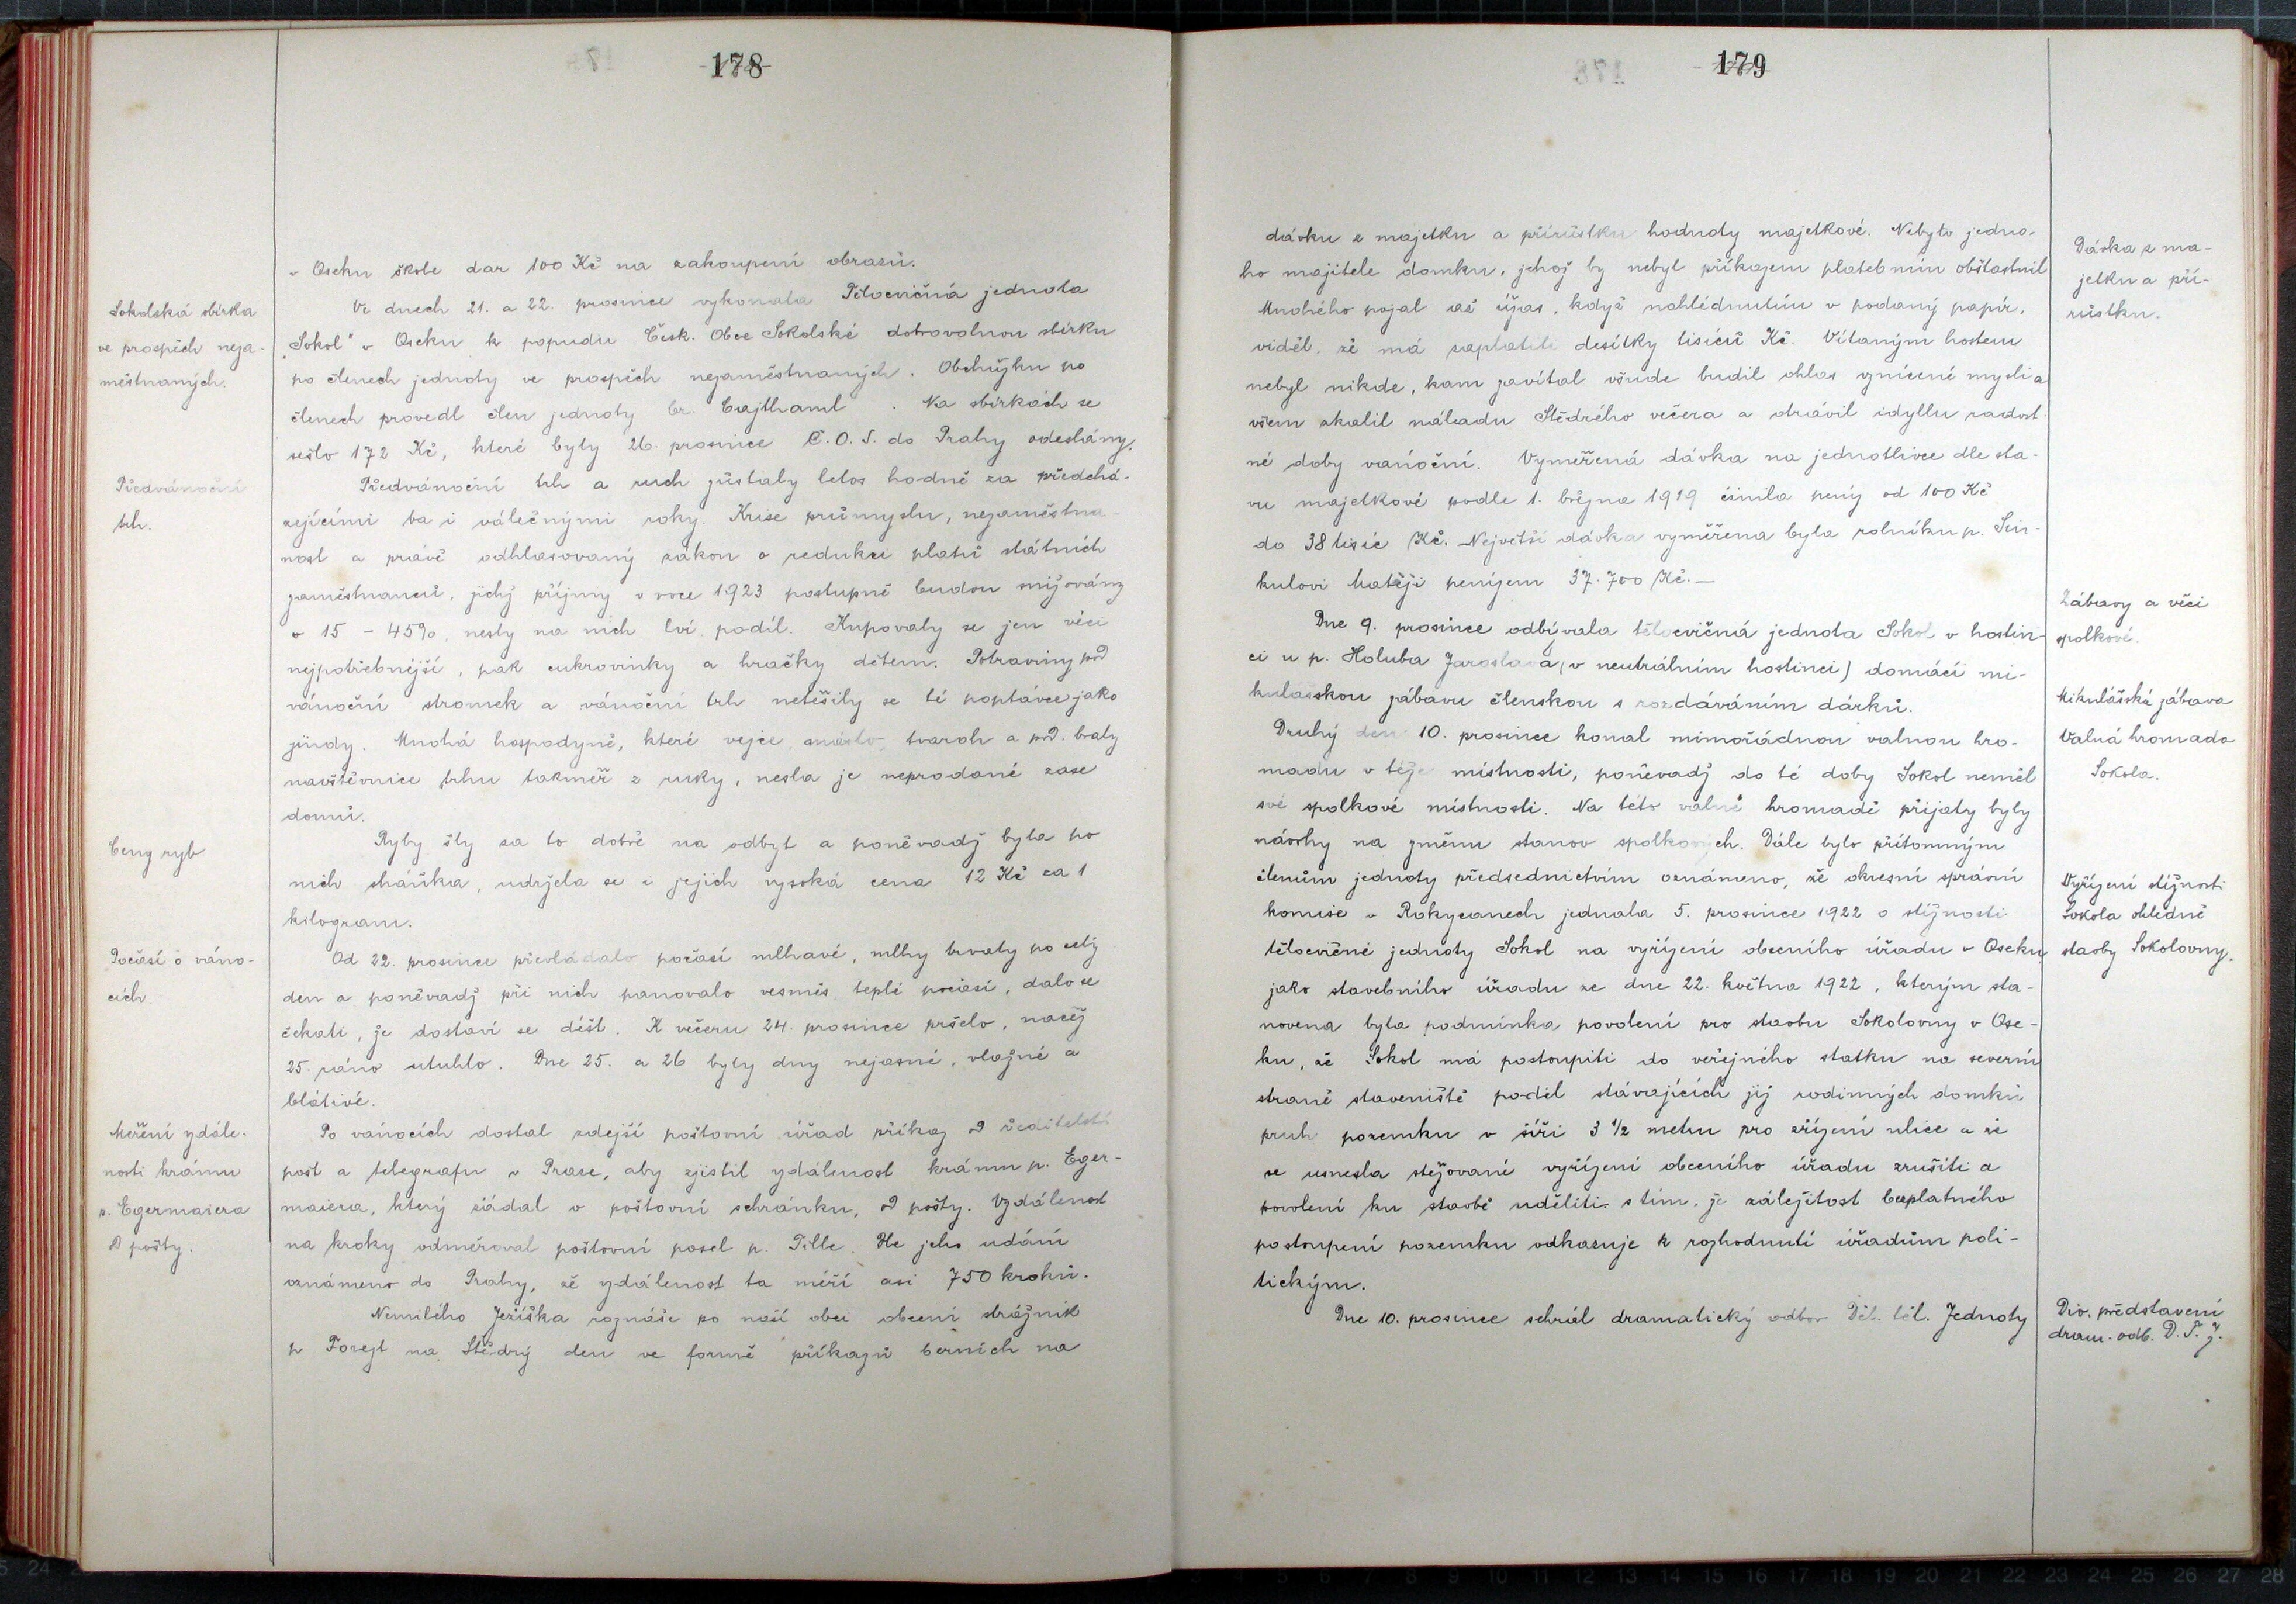 178
v Oseku škole dar 100 Kč na zakoupení obrazů.
Sokolská sbírka
ve prospěch neza-
městnaných.
Ve dnech 21. a 22. prosince vykonala Tělocvičná jednota
„Sokol" v Oseku k popudu Česk. Obce Sokolské dobrovolnou sbírku
po členech jednoty ve prospěch nezaměstnaných. Obchůzku po
členech provedl člen jednoty br. Cajthaml. Na sbírkách se
sešlo 172 Kč, které byly 26. prosince Č. O. S. do Prahy odeslány.
Předvánoční
trh.
Předvánoční trh a ruch zůstaly letos hodně za předchá-
zejícími ba i válečnými roky. Krise průmyslu, nezaměstna-
nost a právě odhlasovaný zákon o redukci platů státních
zaměstnanců, jichž příjmy v roce 1923 postupně budou snižovány
o 15 - 45%, nesly na nich lví podíl. Kupovaly se jen věci
nejpotřebnější, pak cukrovinky a hračky dětem. Potraviny pod
vánoční stromek a vánoční trh netěšily se té poptávce jako
jindy. Mnohá hospodyně, které vejce, máslo, tvaroh a pod. braly
navštěvnice trhu takměř z ruky, nesla je neprodané zase
domů.
Ceny ryb
Ryby šly za to dobře na odbyt a poněvadž byla po
nich sháňka, udržela se i jejich vysoká cena 12 Kč za 1
kilogram.
Počasí o váno-
cích.
Od 22. prosince převládalo počasí mlhavé, mlhy trvaly po celý
den a poněvadž při nich panovalo vesměs teplé počasí, dalo se
čekati, že dostaví se déšť. K večeru 24. prosince pršelo, načež
25. ráno utuhlo. Dne 25. a 26 byly dny nejasné, vlažné a
blátivé.
Měření vzdále-
nosti krámu
p. Egermaiera
od pošty.
Po vánocích dostal zdejší poštovní úřad příkaz od ředitelství
pošt a telegrafu v Praze, aby zjistil vzdálenost krámu p. Eger-
maiera, který žádal o poštovní schránku, od pošty. Vzdálenost
na kroky odměřoval poštovní posel p. Tille. Dle jeho udání
oznámeno do Prahy, že vzdálenost ta měří asi 750 kroků.
Nemilého Ježíška roznáše po naší obci obecní strážník
p. Forejt na Štědrý den ve formě příkazů berních na
179
dávku z majetku a přírůstku hodnoty majetkové. Nebylo jedno-
ho majitele domku, jehož by nebyl příkazem platebním obšťastnil
Mnohého pojal až úžas, když nahlédnutím v podaný papír,
viděl, že má zaplatiti desítky tisíců Kč. Vítaným hostem
nebyl nikde, kam zavítal všude budil ohlas vznícené mysli a
všem zkalil náladu Štědrého večera a otrávil idyllu radost-
né doby vánoční. Vyměřená dávka na jednotlivce dle sta-
vu majetkové podle 1. března 1919 činila peníz od 100 Kč
do 38 tisíc Kč. Největší dávka vyměřena byla rolníku p. Sin-
kulovi Matěji penízem 37.700 Kč.—
Dávka z ma-
jetku a pří-
růstku.
Zábavy a věci
spolkové.
Dne 9. prosince odbývala tělocvičná jednota Sokol v hostin-
ci u p. Holuba Jaroslava, (v neutrálním hostinci) domácí mi-
kulášskou zábavu členskou s rozdáváním dárků.
Mikulášská zábava
Druhý den 10. prosince konal mimořádnou valnou hro-
madu v téže místnosti, poněvadž do té doby Sokol neměl
své spolkové místnosti. Na této valné hromadě přijaty byly
návrhy na změnu stanov spolkových. Dále bylo přítomným
členům jednoty předsednictvím oznámeno, že okresní správní
komise v Rokycanech jednala 5. prosince 1922 o stížnosti
tělocvičné jednoty Sokol na vyřízení obecního úřadu v Oseku
jako stavebního úřadu ze dne 22. května 1922, kterým sta-
novena byla podmínka povolení pro stavbu Sokolovny v Ose-
ku, že Sokol má postoupiti do veřejného statku na severní
straně staveniště podél stávajících již rodinných domků
pruh pozemku v šíři 3 1/2 metru pro zřízení ulice a že
se usnesla stěžované vyřízení obecního úřadu zrušiti a
povolení ku stavbě uděliti s tím, že záležitost bezplatného
postoupení pozemku odkazuje k rozhodnutí úřadům poli-
tickým.
Valná hromada
Sokola.
Vyřízení stížnosti
Sokola ohledně
stavby Sokolovny.
Dne 10. prosince sehrál dramatický odbor Děl. těl. Jednoty
Div. představení
dram. odb. D. T. J.